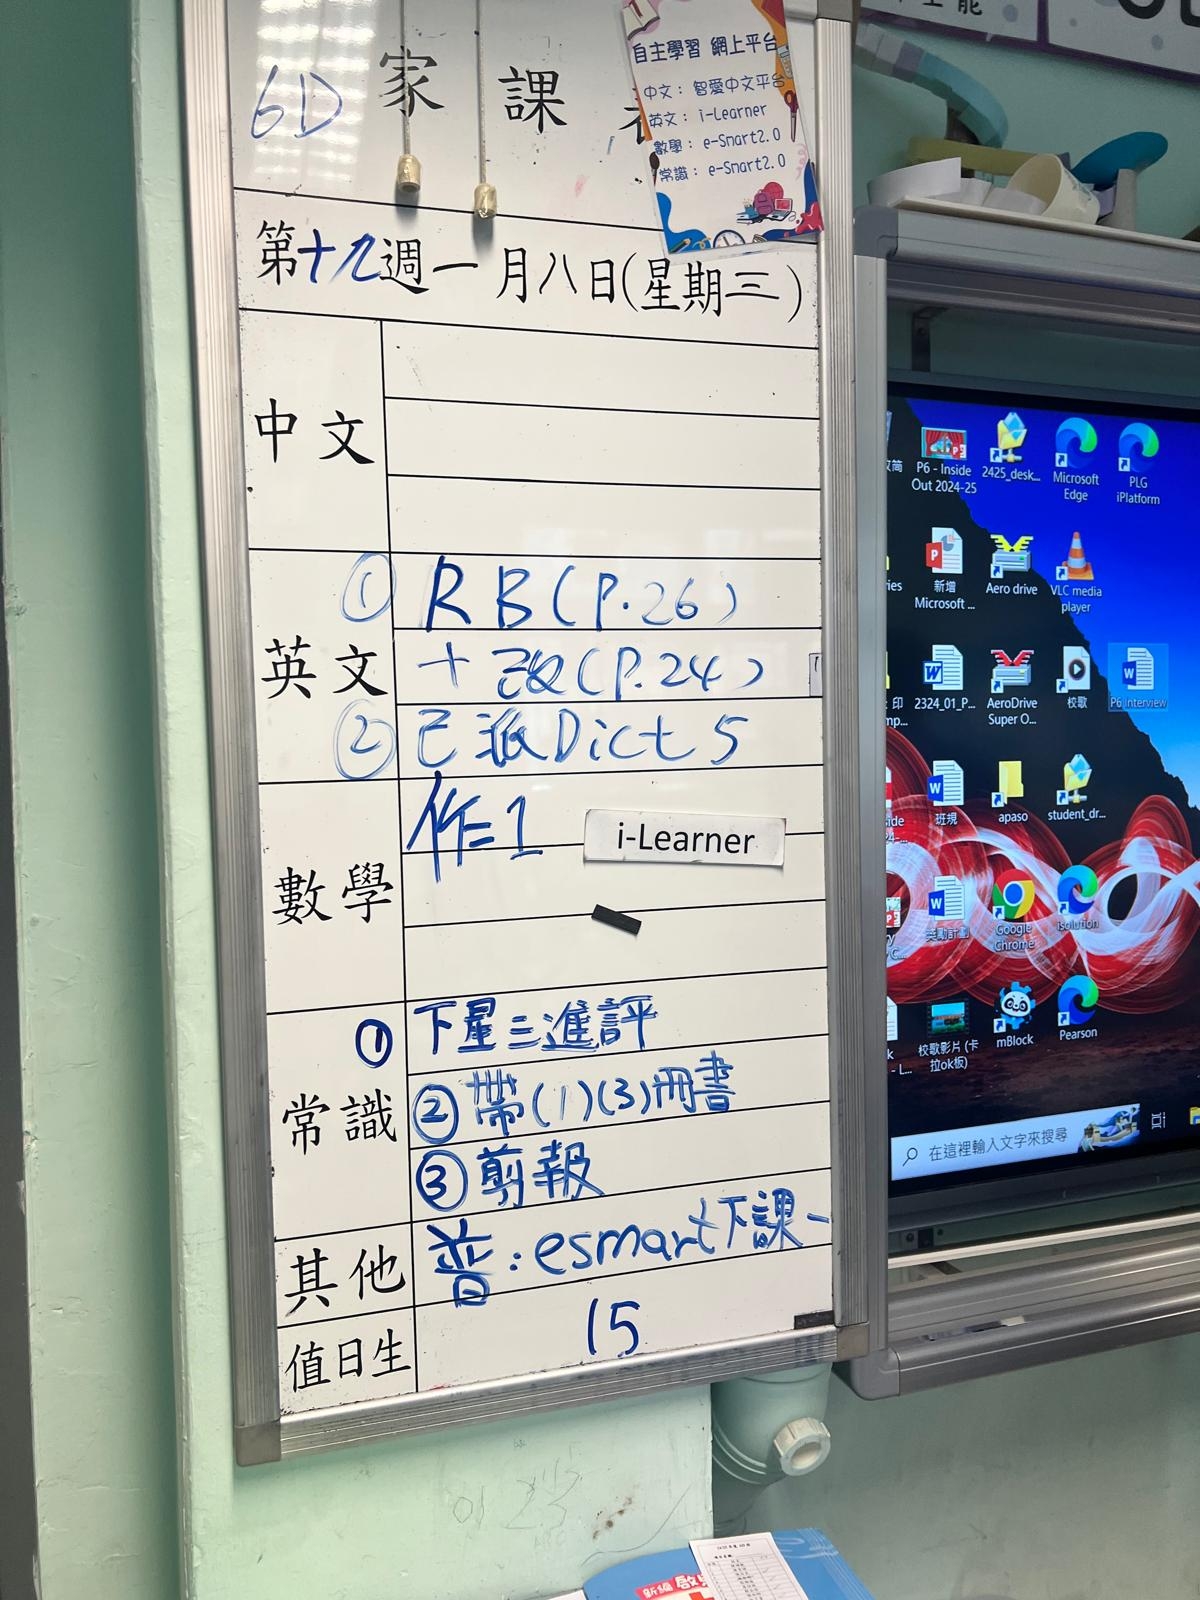 6D 家課
自主學習 網上平台
中文： 智愛中文平台
英文： i-Learner
數學： e-Smart2.0
常識： e-Smart2.0
第十九週一月八日(星期三)
中文
英文
① RB(P.26)
+ 改(P.24)
② 已派Dict 5
數學
作=1
i-Learner
常識
① 下星三進評
② 帶(1)(3)冊書
③ 剪報
其他
普：esmart下課一
值日生
15
P6 - Inside Out 2024-25
2425_desk...
Microsoft Edge
PLG iPlatform
新增 Microsoft ...
Aero drive
VLC media player
2324_01_P...
AeroDrive Super O...
校歌
P6 interview
班規
apaso
student_dr...
獎勵計劃
Google Chrome
isolution
校歌影片 (卡拉ok板)
mBlock
Pearson
在這裡輸入文字來搜尋